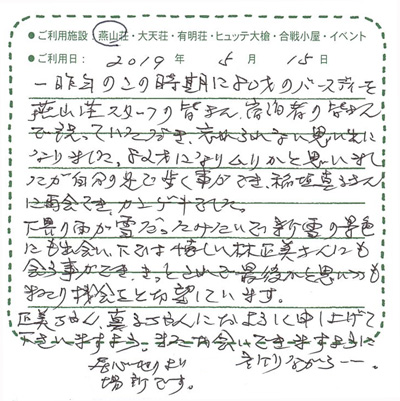 ●ご利用施設 燕山荘・大天荘・有明荘・ヒュッテ大槍・合戦小屋・イベント
●ご利用日: 2019 年 5 月 15 日
一昨年のこの時期に 才のバースデーを
燕山荘スタッフの皆さん、宿泊者の皆さん
で祝っていただき、忘れられない思い出に
なりました。 才になりムリかと思いまし
たが自分の足で歩く事ができ、 さん
に再会でき、カンゲキでした。
下界の雨が雪だったみたいで新雪の景色
にも出会い、下では懐しい林正美さんにも
会う事ができ、きっとこれで最後かと思いつつも
またの機会をと切望しています。
正美さん、真 さんによろしく申し上げて
下さいますよう。またお会いできますように
祈りながら――。
居心地のよい
場所です。